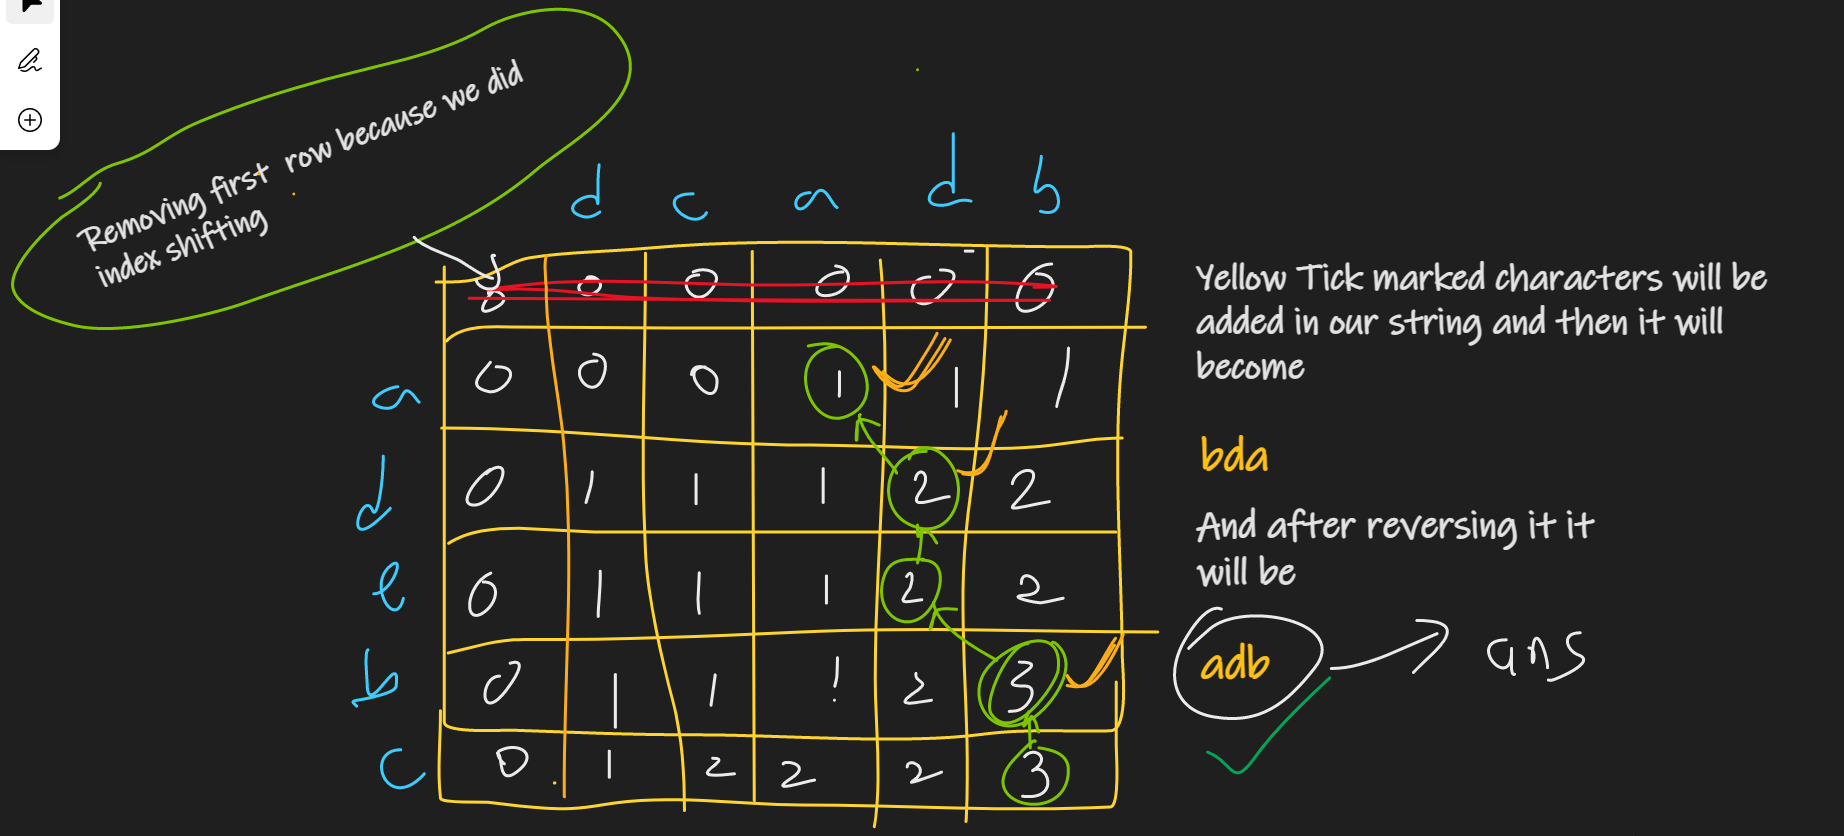 Removing first row because we did
index shifting
d c a d b
0 0 0 0 0
a 0 0 0 1 1 1
d 0 1 1 1 2 2
e 0 1 1 1 2 2
b 0 1 1 ! 2 3
c 0 1 2 2 2 3
Yellow Tick marked characters will be
added in our string and then it will
become
bda
And after reversing it it
will be
adb ans